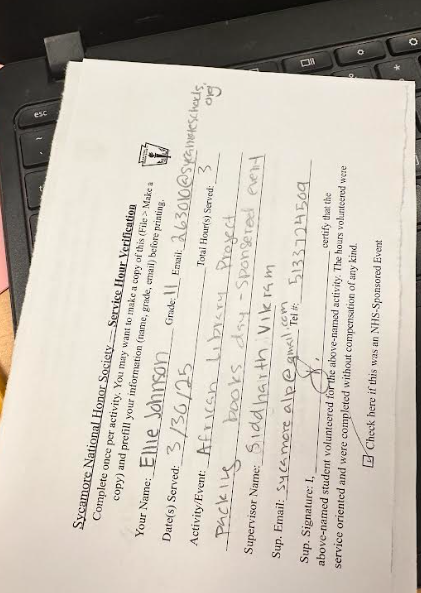 esc
Sycamore National Honor Society — Service Hour Verification
Complete once per activity. You may want to make a copy of this (File > Make a
copy) and prefill your information (name, grade, email) before printing.
Your Name: Ellie Johnson Grade: 11 Email: 263010@sycamoreschools.
org
Date(s) Served: 3/30/25 Total Hour(s) Served: 3
Activity/Event: African Library Project
packing books day - sponsored event
Supervisor Name: Siddhaith Vikram
Sup. Email: sycamore.alp@gmail.com Tel #: 5133724509
Sup. Signature: I, certify that the
above-named student volunteered for the above-named activity. The hours volunteered were
service oriented and were completed without compensation of any kind.
Check here if this was an NHS-Sponsored Event